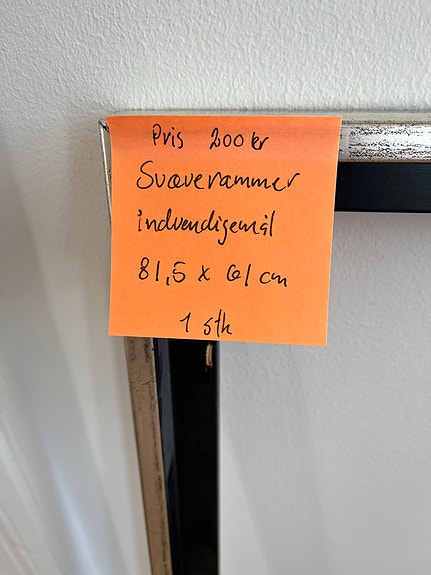 Pris 200 kr
Svæverammer
indvendigemål
81,5 x 61 cm
1 stk